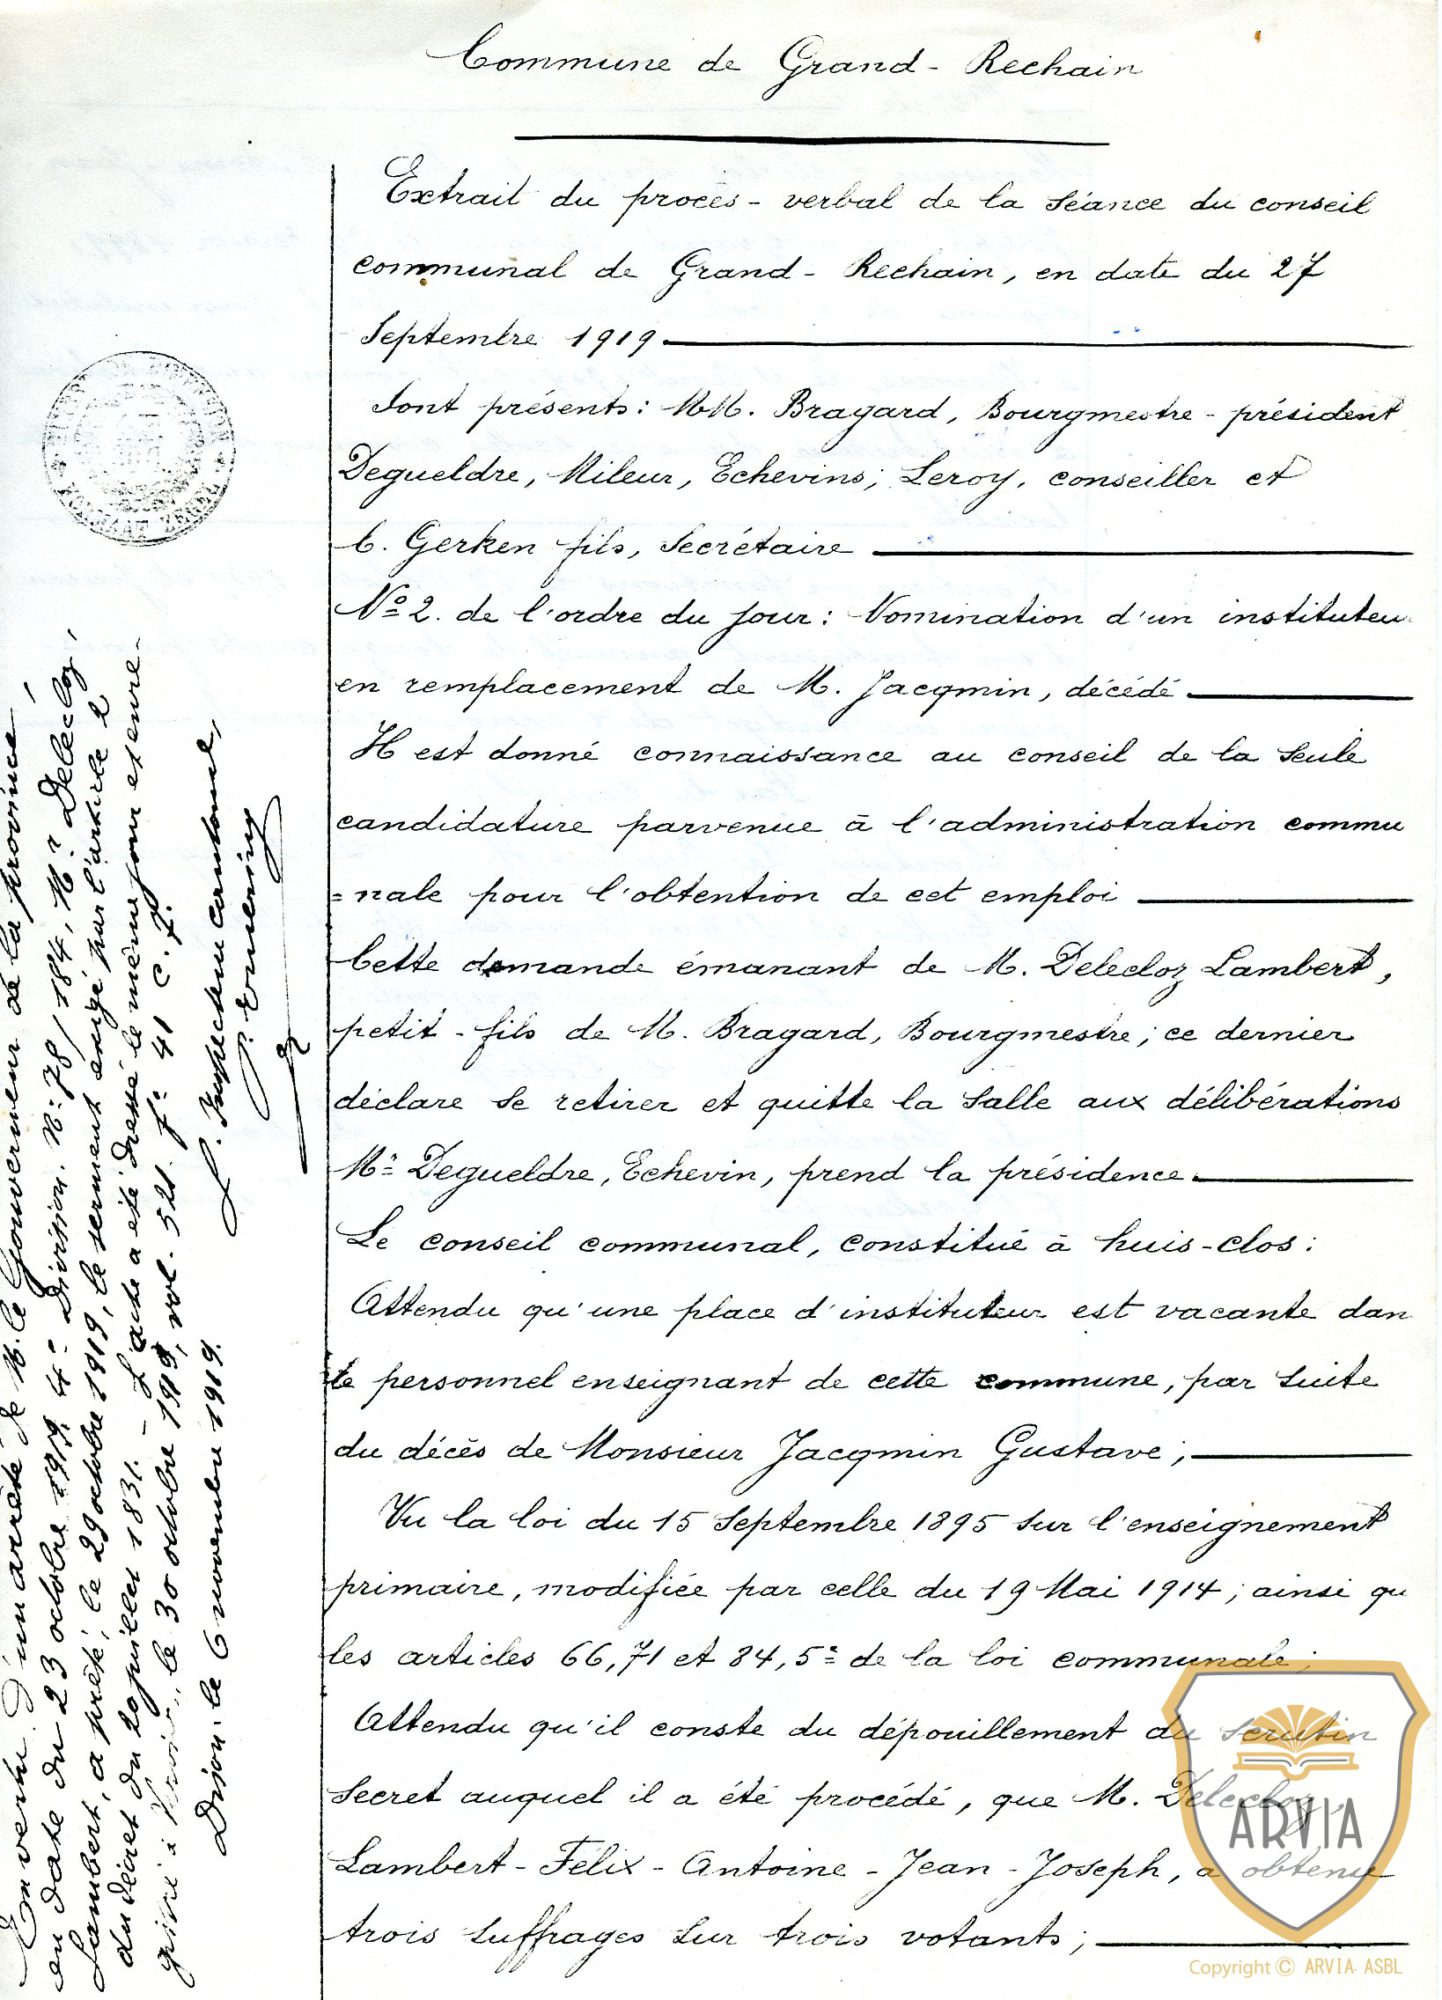 Commune de Grand-Rechain
Extrait du procès-verbal de la séance du conseil
communal de Grand-Rechain, en date du 27
Septembre 1919
Sont présents: MM. Bragard, Bourgmestre-président
Degueldre, Mileur, Echevins; Leroy, conseiller et
C. Gerken fils, Secrétaire
Nº 2. de l'ordre du jour: Nomination d'un instituteu
en remplacement de M. Jacqmin, décédé
Il est donné connaissance au conseil de la seule
candidature parvenue à l'administration commu
=nale pour l'obtention de cet emploi
Cette demande émanant de M. Delecloz Lambert,
petit-fils de M. Bragard, Bourgmestre; ce dernier
déclare se retirer et quitte la salle aux délibérations
Mr Degueldre, Echevin, prend la présidence
Le conseil communal, constitué à huis-clos:
Attendu qu'une place d'instituteur est vacante dan
le personnel enseignant de cette commune, par suite
du décès de Monsieur Jacqmin Gustave;
Vu la loi du 15 Septembre 1895 sur l'enseignement
primaire, modifiée par celle du 19 Mai 1914; ainsi qu
les articles 66, 71 et 84, 5º de la loi communale;
Attendu qu'il conste du dépouillement du scrutin
secret auquel il a été procédé, que M. Delecloz,
Lambert-Félix-Antoine-Jean-Joseph, a obtenu
trois suffrages sur trois votants;
En vertu d'un arrêté de M. le Gouverneur de la province,
en date du 23 octobre 1919, 4e Division. N: 78/184, Mr Delecloz,
Lambert, a prêté, le 29 octobre 1919, le serment exigé par l'article 2
du décret du 20 juillet 1831. - L'acte a été dressé le même jour et enre-
gistré à Verviers, le 30 octobre 1919, vol. 521. fº 41 C. 7.
Dison, le 6 novembre 1919.
L'Inspecteur cantonal,
ARVIA
Copyright © ARVIA ASBL